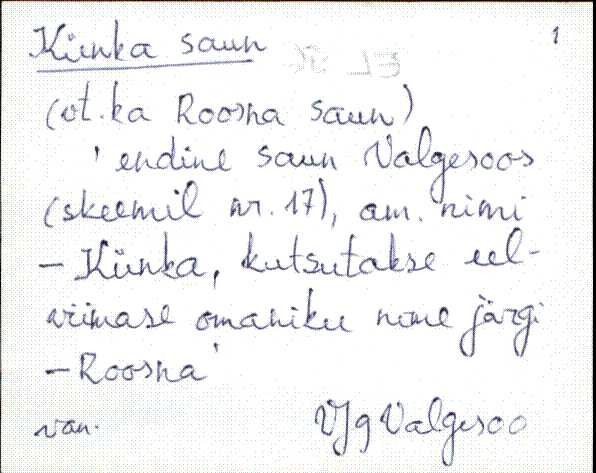 Künka saun
1
(vt. ka Roosna saun)
' endine saun Valgesoos
(skeemil nr. 17), am. nimi
– Künka, kutsutakse eel-
viimase omaniku nime järgi
– Roosna'
van. VJg Valgesoo